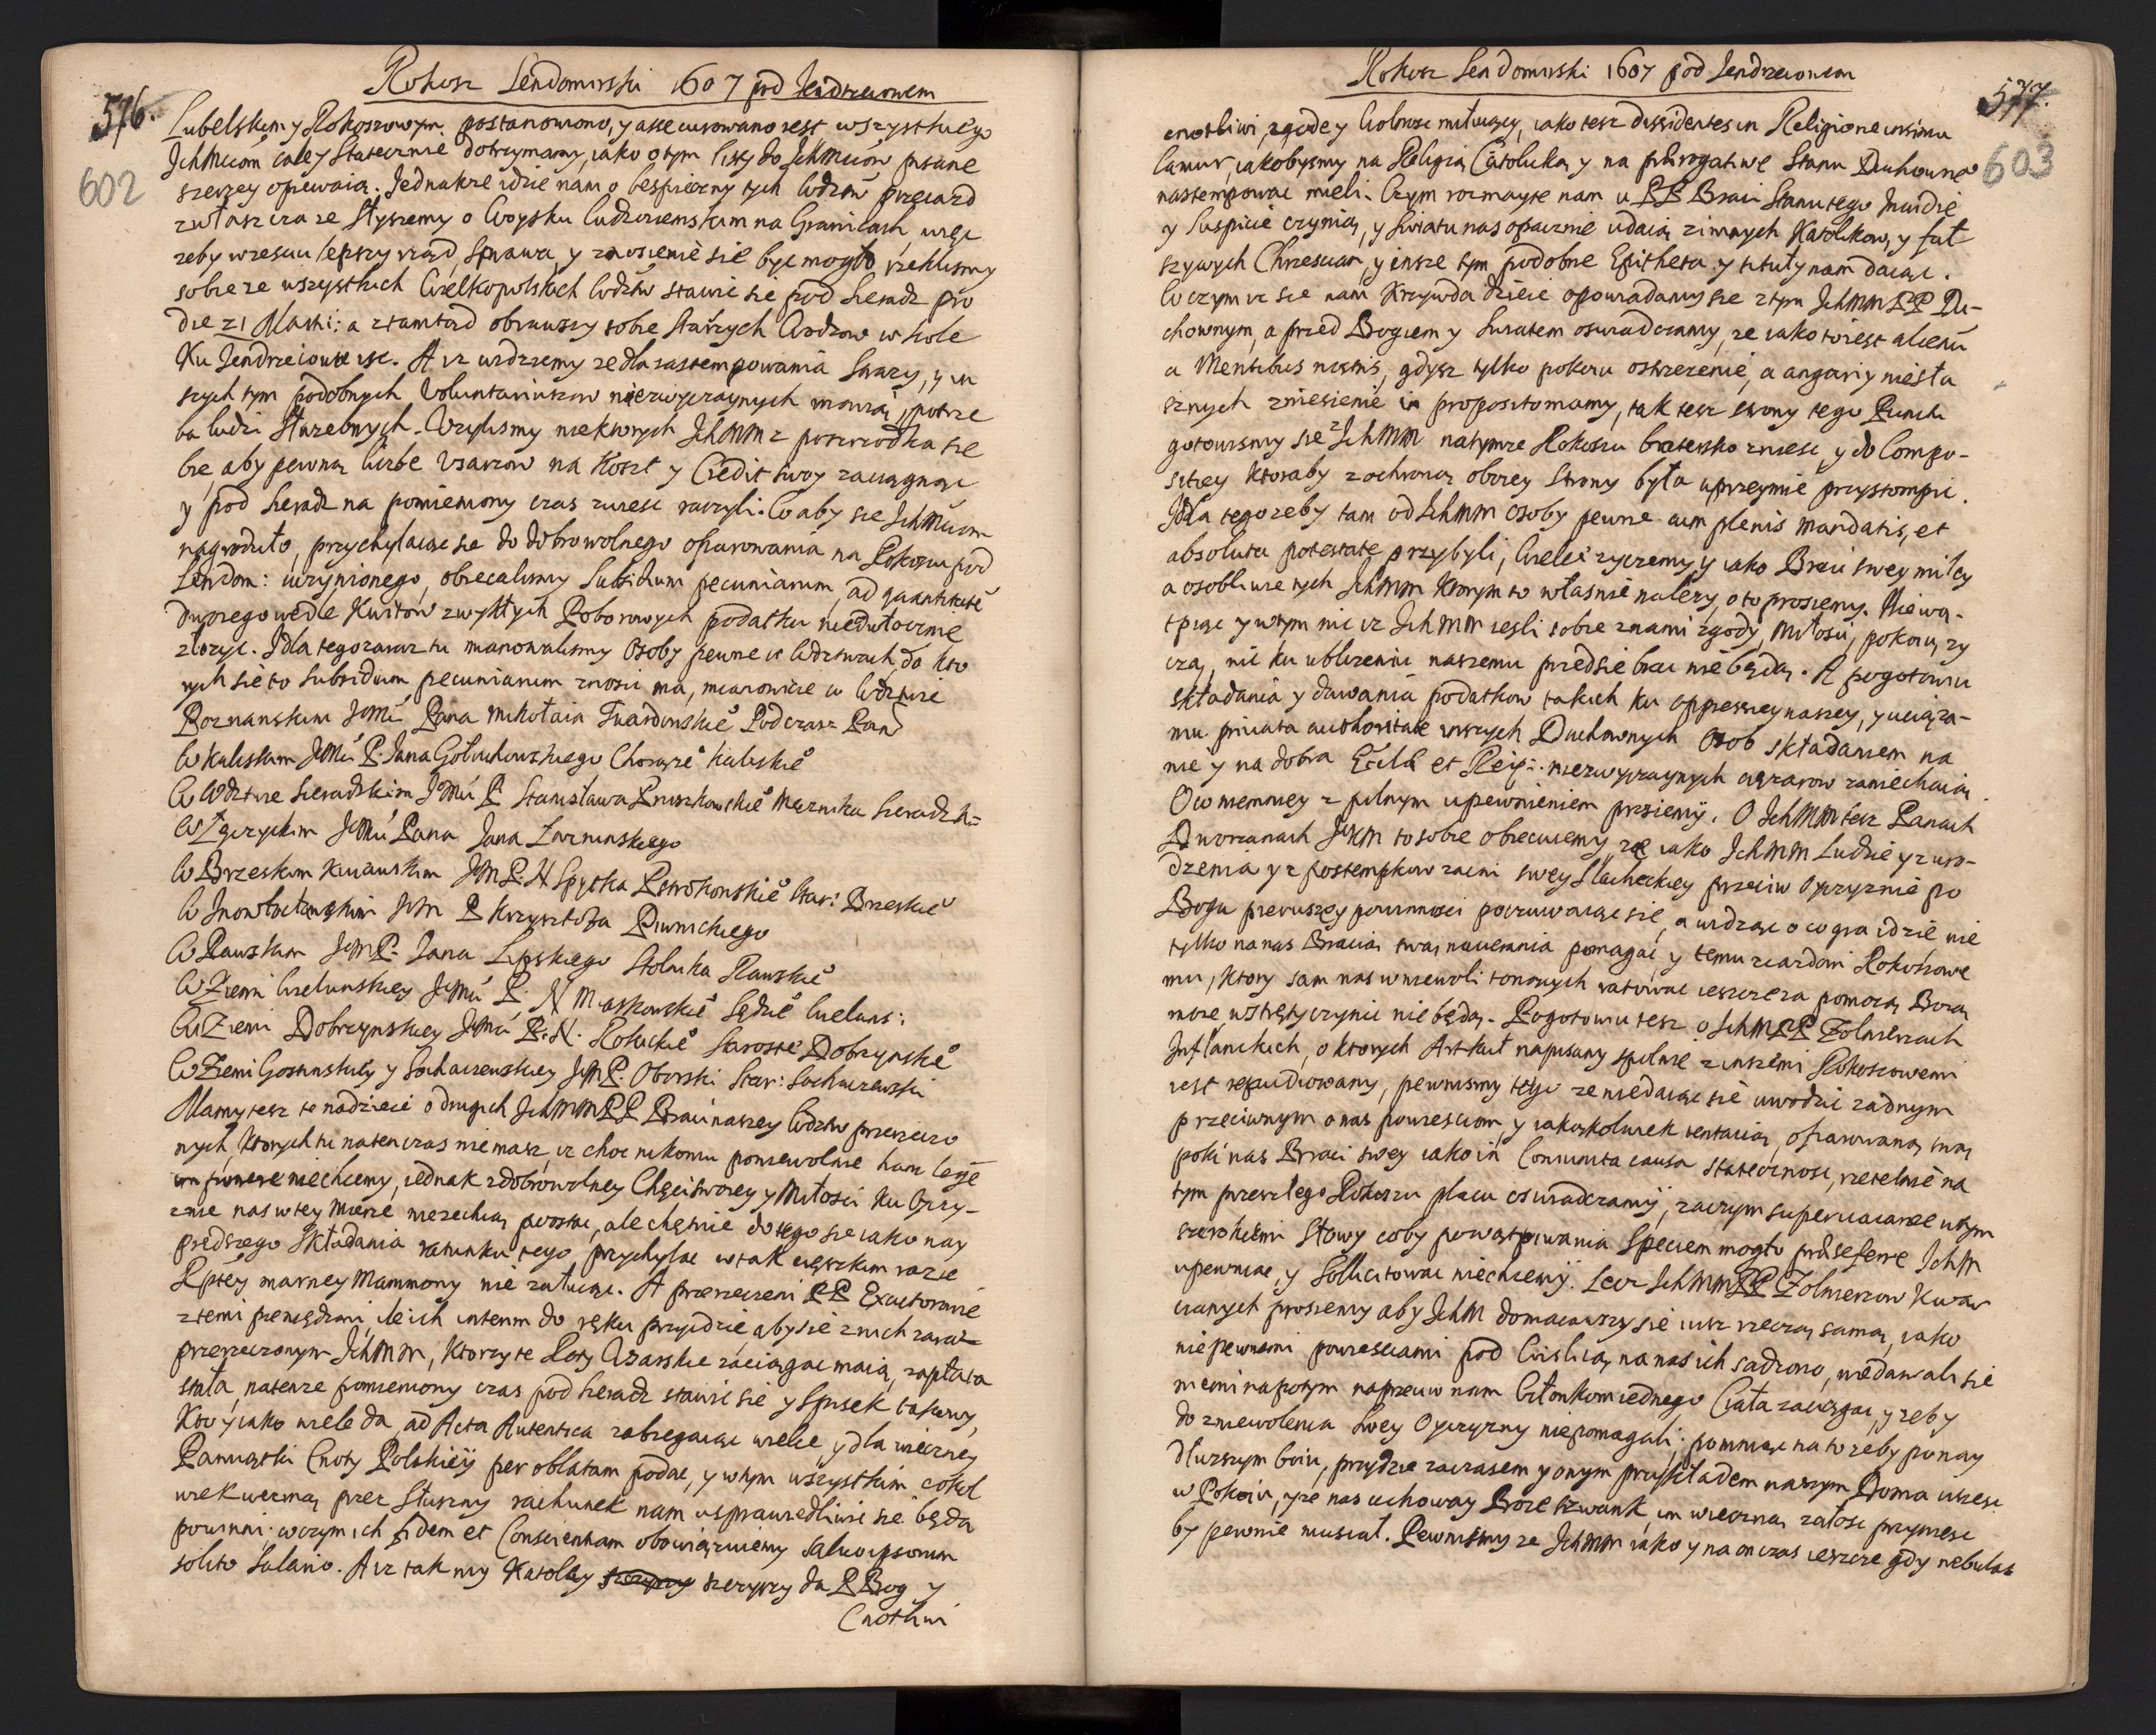 Rokosz Sendomirski 1607 pod Jendrzeiowem
576.
602
Lubelskim y Rokoszowym. postanowiono, y assecurowano iest wszystkiego
IchMciom całey Statecznie dotrzymamy, iako o tym listy do IchMciów pisane
szerzey opiewaią. Jednakze idzie nam o bespieczny tych Wdztw przeiazd
zwłaszcza ze Słyszemy o Woysku Cudzoziemskim na Granicach, więc
zeby wzesciu lepszy rząd, sprawa, y znosienie sie być mogło rzeklismy
sobie ze wszystkich Wielkopolskich Wdztw stawic sie pod Sieradz pro
die 21 Martij: a ztamtąd obrawszy sobie Starszych Wodzow w kole
Ku Jendrzeiowu isc. A iz widziemy ze dla zastempowania Strazy, y in
szych tym podobnych Voluntariuszow niezwyczaynych mowią, potrze
ba ludzi Słuzebnych. Uzylismy niektorych IchMM z poszrodka sie
bie, aby pewną liczbę Usarzow na Koszt y Credit swoy zaciągnąć
y pod Sieradz na pomieniony czas zwiesc raczyli. Co aby sie IchMciom
nagrodziło, przychylaiąc sie do dobrowolnego ofiarowania na Rokoszu pod
Sendom: uczynionego, obiecalismy Subsidium pecuniarium, ad quantitate
dwoiego wedle Kwitów zwykłych Poborowych podatku nieodwłocznie
złozyc. I dla tego zaraz tu mianowalismy Osoby pewne w Wdztwach do kto
rych sie to Subsidium pecuniarium znosic ma, mianowicie w Wdztwie
Poznanskim JeMci Pana Mikołaia Twardowskie° Podczasz: Pozn
W Kaliskim JeMci P. Jana Gołuchowskiego Chorąze° Kaliskie°
W Wdztwie Sieradzkim JMci P. Stanisława Pruszkowskie° Miecznika Sieradzki=
W Łęczyckim JeMci Pana Jana Zarninskiego
W Brzeskim Kuiawskim JeM P. N Spytka Pstrokonskie° Star: Brzeskie°
W Inowłocławskim JeM P Krzysztofa Piwnickiego
W Rawskim JeM P. Jana Lipskiego Stolnika Rawskie°
W Ziemi Wielunskiey JeMci P. N Miaskowskie° Sędzie° Wieluns:
W Ziemi Dobrzynskiey JeMci P. N. Rokickie° Staroste Dobrzynskie°
W Ziemi Gostinskiey y Sochaczewskiey JeM P. Oborski Star: Sochaczewski
Mamy tesz te nadzieie o drugich IchMM PP Braci naszey Wdztw przerzeczo
nych, ktorych tu na ten czas nie masz, iz choc nikomu poniewolnie hanc legē
imponere niechcemy, iednak z dobrowolney Chęci swoiey y Miłosci ku Oyczy-
znie nas w tey mierze niezechcą zostac, ale chętnie do tego sie iako nay
prędszego Składania ratunku tego przychylac w tak cięszkim razie
Rptey marney Mammony nie załuiąc. A przerzeczeni PP Exactorowie
z temi pieniędzmi, ile ich interim do ręku przyidzie, aby sie z nich zaraz
przerzeczonym IchMM, ktorzy te Roty Usarskie zaciągac maią, zapłata
stała, na tenze pomieniony czas pod Sieradz stawic sie y Spisek takowy,
Kto y iako wiele da, ad Acta Autentica zabiegaiąc wielce y dla wieczney
Pamiątki Cnoty Polskiéy per oblatam podac, y w tym wszystkim cokol
wiek wezmą przez Słuszny rachunek nam usprawiedliwic sie będą
powinni: w czym ich fidem et Conscientiam obowiązuiemy salvo ipsorum
solito Salario. A iz tak my Katolicy szczyrzy da P Bog y
Cnotliwi
Rokosz Sendomirski 1607 pod Jendrzeiowem
577.
603
cnotliwi, zgodę y Wolnosc miłuiący, iako tesz dissidentes in Religione insimu
lamur, iakobysmy na Religią Catolicką y na prærogatiwe Stanu Duchowne°
nastempowac mieli. Czym rozmayte nam u PP Braci Stanu tego Inuidie
y Suspicie czynią, y Swiatu nas opacznie udaią zimnych Katolikow, y fał
szywych Chrzescian, y insze tym podobne Epitheta y tituły nam daiąc.
W czym iz sie nam Krzywda dzieie opowiadamy sie z tym IchMM PP Du-
chownym, a przed Bogiem y Swiatem oswiadczamy, ze iako to iest alienū
a Mentibus nostris, gdysz tylko pokoiu ostrzezenie, a angariy niesłu
sznych zniesienie in proposito mamy, tak tesz strony tego Punctu
gotowismy sie z IchMM na tymze Rokoszu bratersko zniesc, y do Compo-
sitiey ktoraby z ochroną oboiey strony była uprzeymie przystompic.
I dla tego zeby tam od IchMM osoby pewne cum plenis mandatis, et
absoluta potestate przybyli, wielce zyczemy, y iako Braci swey miłey
a osobliwie tych IchMM ktorym to własnie nalezy, o to prosiemy. Nie wą-
tpiąc y w tym nic iz IchMM iesli sobie z nami zgody, Miłosci, pokoiu, zy
czą, nic ku ublizeniu naszemu przedsie brac nie będą. A pogotowiu
składania y dawania podatkow takich ku oppressiey naszey, y uciąze-
niu privata authoritate inszych Duchownych Osob składaniem na
nie y na dobra Eccl&lt;ae&gt; et Reip: niezwyczaynych cięzarow zaniechaią
O co niemniey z pilnym upewnieniem prosiemy. O IchMM tesz Panach
Dworzanach JKM to sobie obiecuiemy, ze iako IchMM Ludzie y z uro-
dzenia y z postempkow zacni swey slacheckiey przeciw Oyczyznie po
Bogu pierwszey powinnosci poczuwaiąc sie, a widząc o co gra idzie nie
tylko na nas Bracią swą nacierania pomagac, y temu ziazdowi Rokoszowe
mu, ktory sam nas w niewoli tonących ratowac ieszcze za pomocą Bozą
moze wstręty czynic nie będą. Pogotowiu tesz o IchM PP Zołnierzach
Inflanckich, o ktorych Artikuł napisany spolnie z inszemi Rokoszowemi
iest repudiowany, pewnismy tego ze niedaiąc sie uwodzic zadnym
przeciwnym o nas powiesciom y iakąkolwiek tentacią, ofiarowaną swą
poki nas Braci swey iako in Communi causa stateczność, rzetelnie na
tym przeszłego Rokoszu placu oswiadczamy, zaczym supervacanee w tym
szerokiemi słowy coby powątpiwania Speciem mogło præseferre IchM
upewniac, y Sollicitowac niechcemy. Lecz IchMM PP Zołnierzow Kwar
cianych prosiemy aby IchM domacawszy sie iusz rzeczą samą, iako
niepewnemi powiesciami pod Wislicą na nas ich sadzono, niedawali sie
niemi napotym naprzeciw nam Członkom iednego Ciała zaciągac, y zeby
do zniewolenia swey Oyczyzny niepomagali; pomniąc na to zeby po nay
dłuszym boiu, przydzie zaczasem y onym przykładem naszym Doma usiesc
w Pokoiu, y ze nas uchoway Boze szwank, im wieczną załosc przyniesc
by pewnie musiał. Pewnismy ze IchMM iako y na on czas ieszcze gdy nebulas